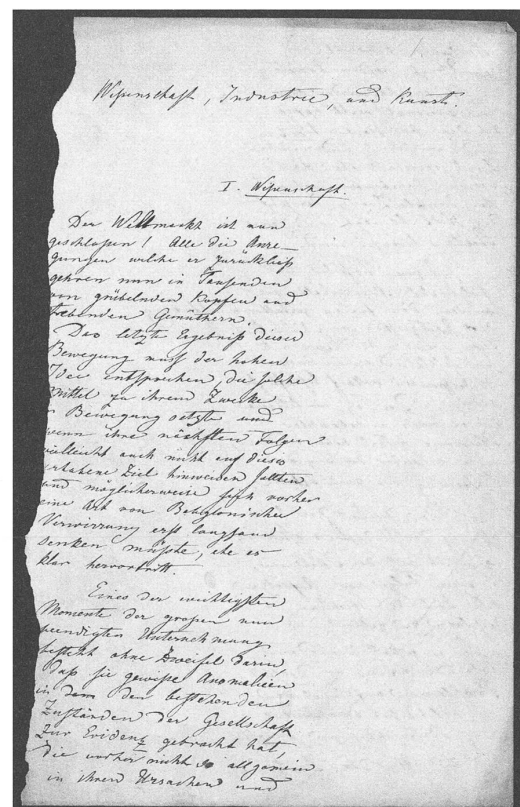 Wissenschaft, Industrie, und Kunst.
I. Wissenschaft.
Der Weltmarkt ist nun
geschlossen! Alle die Anre-
gungen welche er zurückließ
gehren nun in Tausenden
von grübelnden Köpfen und
strebenden Gemüthern.
Das letzte Ergebniß dieser
Bewegung muß der hohen
Idee entsprechen, die solche
Mittel zu ihrem Zwecke
in Bewegung setzte und
wenn ihre nächsten Folgen
vielleicht auch nicht auf dieses
erhabene Ziel hinweisen sollten
und möglicherweise sich vorher
eine Art von Babylonischer
Verwirrung erst langsam
senken müßte, ehe es
klar hervortritt.
Eines der wichtigsten
Momente der großen nun
beendigten Unternehmung
besteht ohne Zweifel darin
daß sie gewisse Anomalieen
in den bestehenden
Zuständen der Gesellschaft
zur Evidenz gebracht hat,
die vorher nicht so allgemein
in ihren Ursachen und